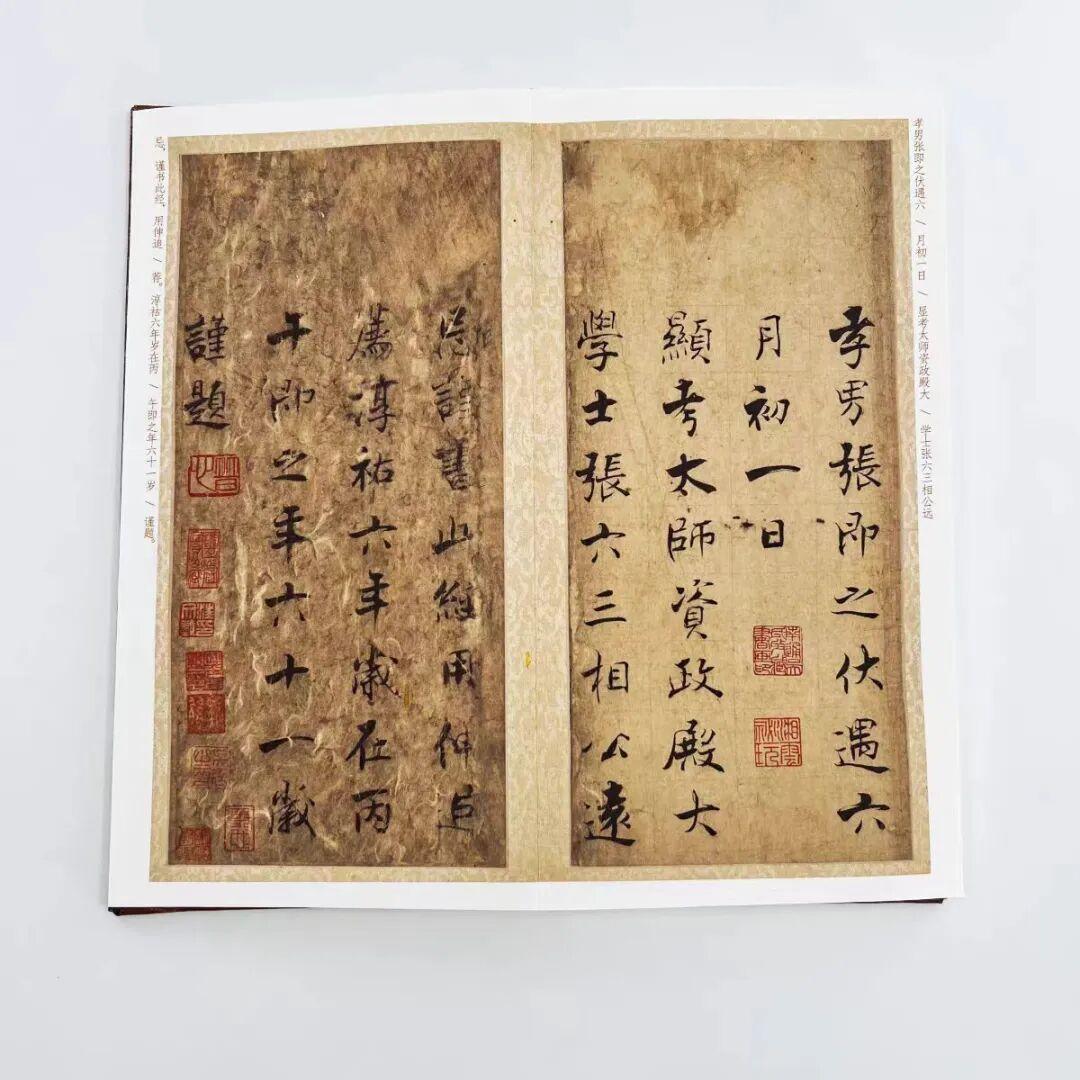 孝男张即之伏遇六 \ 月初一日 \ 显考太师资政殿大 \ 学士张六三相公远
孝男張即之伏遇六
月初一日
顯考太師資政殿大
學士張六三相公遠
忌謹書此經用伸追
薦淳祐六年歲在丙
午即之年六十一歲
謹題
忌，谨书此经，用伸追 \ 荐。淳祜六年岁在丙 \ 午即之年六十一岁 \ 谨题。